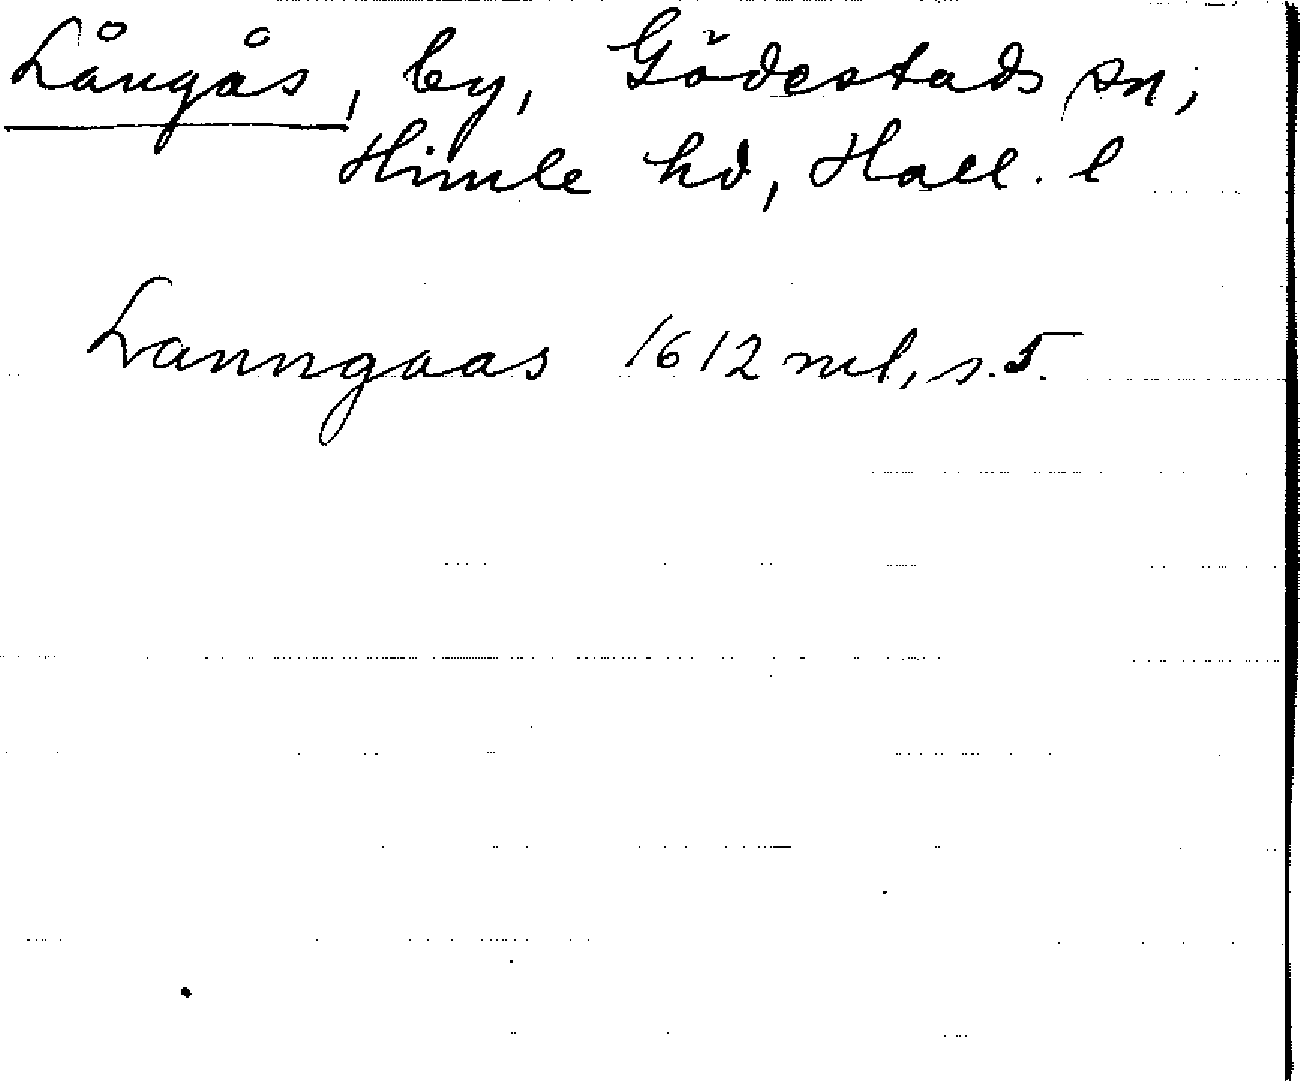 Långås, by, Gödestads sn,
Himle hd, Hall. l
Lanngaas 1612 ml, s. 5.